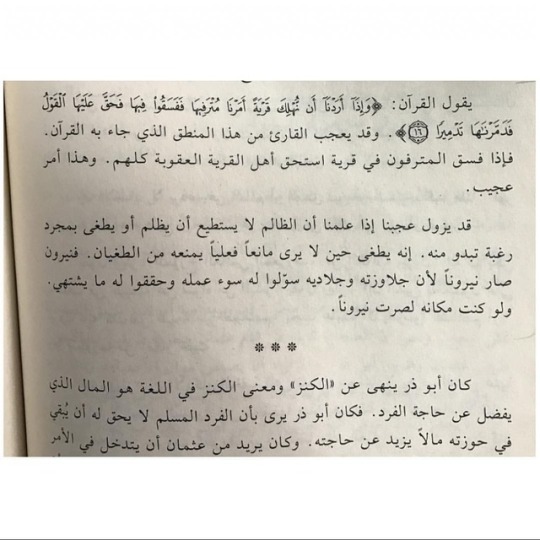 يقول القرآن: ﴿وَإِذَآ أَرَدْنَآ أَن نُّهْلِكَ قَرْيَةً أَمَرْنَا مُتْرَفِيهَا فَفَسَقُوا۟ فِيهَا فَحَقَّ عَلَيْهَا ٱلْقَوْلُ
فَدَمَّرْنَـٰهَا تَدْمِيرًا ۝١٦﴾. وقد يعجب القارئ من هذا المنطق الذي جاء به القرآن.
فإذا فسق المترفون في قرية استحق أهل القرية العقوبة كلهم. وهذا أمر
عجيب.
قد يزول عجبنا إذا علمنا أن الظالم لا يستطيع أن يظلم أو يطغى بمجرد
رغبة تبدو منه. إنه يطغى حين لا يرى مانعاً فعلياً يمنعه من الطغيان. فنيرون
صار نيروناً لأن جلاوزته وجلاديه سوّلوا له سوء عمله وحققوا له ما يشتهي.
ولو كنت مكانه لصرت نيروناً.
* * *
كان أبو ذر ينهى عن «الكنز» ومعنى الكنز في اللغة هو المال الذي
يفضل عن حاجة الفرد. فكان أبو ذر يرى بأن الفرد المسلم لا يحق له أن يُبقي
في حوزته مالاً يزيد عن حاجته. وكان يريد من عثمان أن يتدخل في الأمر